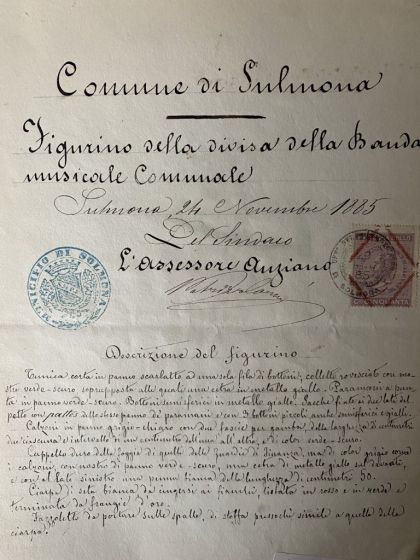 Comune di Sulmona
Figurino della divisa della Banda
musicale Comunale
Sulmona, 24 Novembre 1885
Del Sindaco
L'Assessore Anziano
MUNICIPIO DI SOLMONA
CINQUANTA
Descrizione del figurino
Tunica corta in panno scarlatto ad una sola fila di bottoni; colletto rovesciato con mo-
stre verde-scuro, soprapposta alle quali una cetra in metallo giallo. Paramani a pun-
ta in panno verde-scuro. Bottoni semisferici in metallo giallo. Tasche finte ai due lati del
petto con pattes dello stesso panno di paramani e con 3 bottoni piccoli anche semisferici e gialli.
Calzoni in panno grigio-chiaro con due fascie per gamba, della larghezza di centimetri
due ciascuna e intervallo di un centimetro dall'una all'altra, e di color verde-scuro.
Cappello duro della foggia di quelli delle Guardie di Finanza, ma di color grigio come
i calzoni, con nastro di panno verde-scuro, una cetra di metallo giallo sul davanti,
e con al lato sinistro una penna bianca della lunghezza di centimetri 30.
Ciarpa di seta bianca da cingersi ai fianchi, listata in rosso e in verde e
terminata da frangie d'oro.
Fazzoletto da portare sulle spalle, di stoffa pressochè simile a quella della
ciarpa.